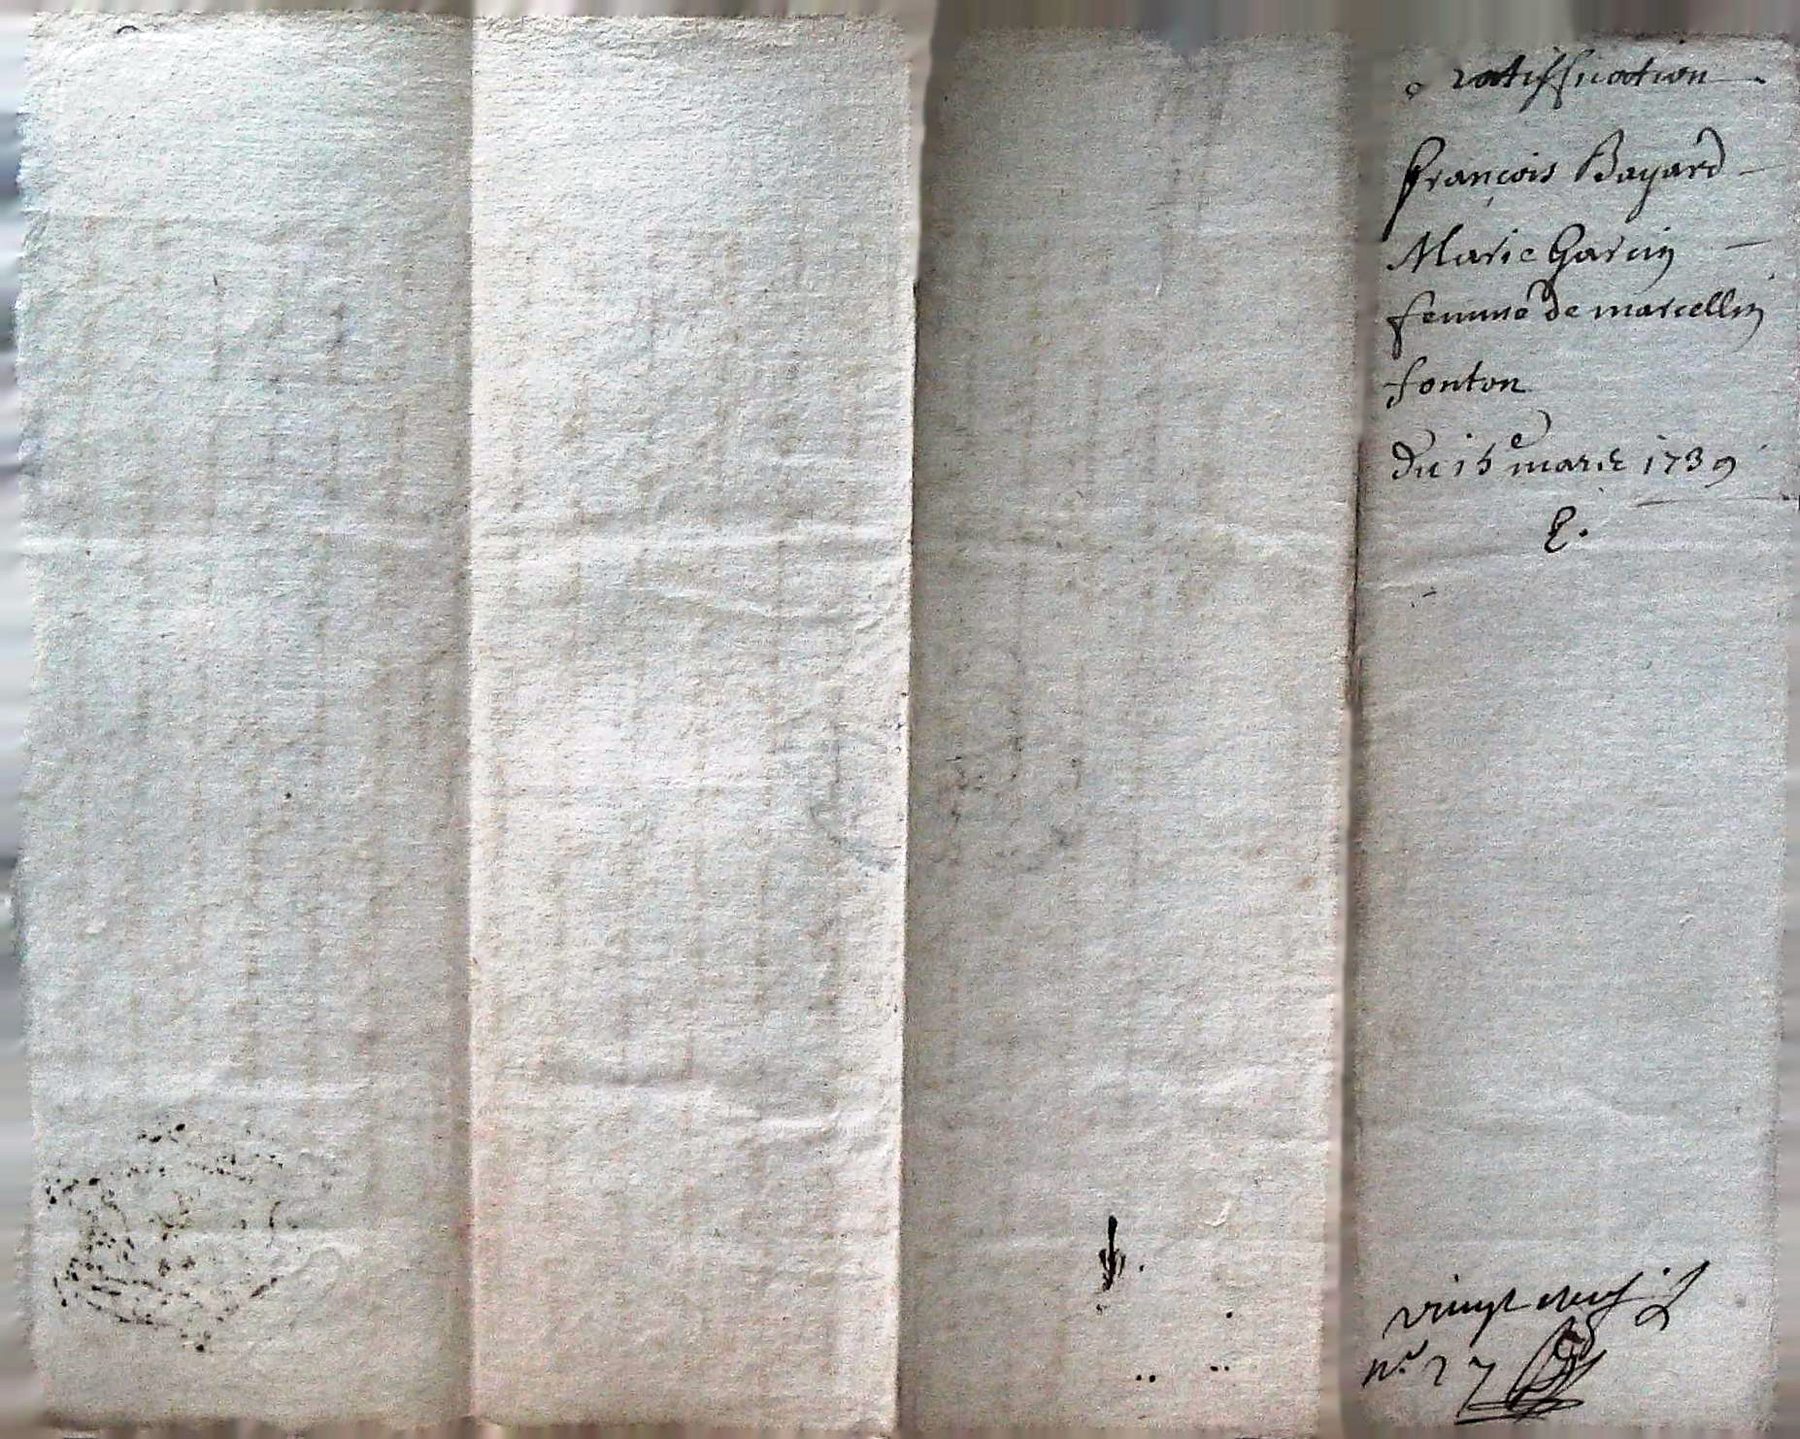 ratiffication
françois Bayard
Marie Garcin
femme de marcellin
fonton
du 15e mars 1739
E.
vingt neuf
n.o 27